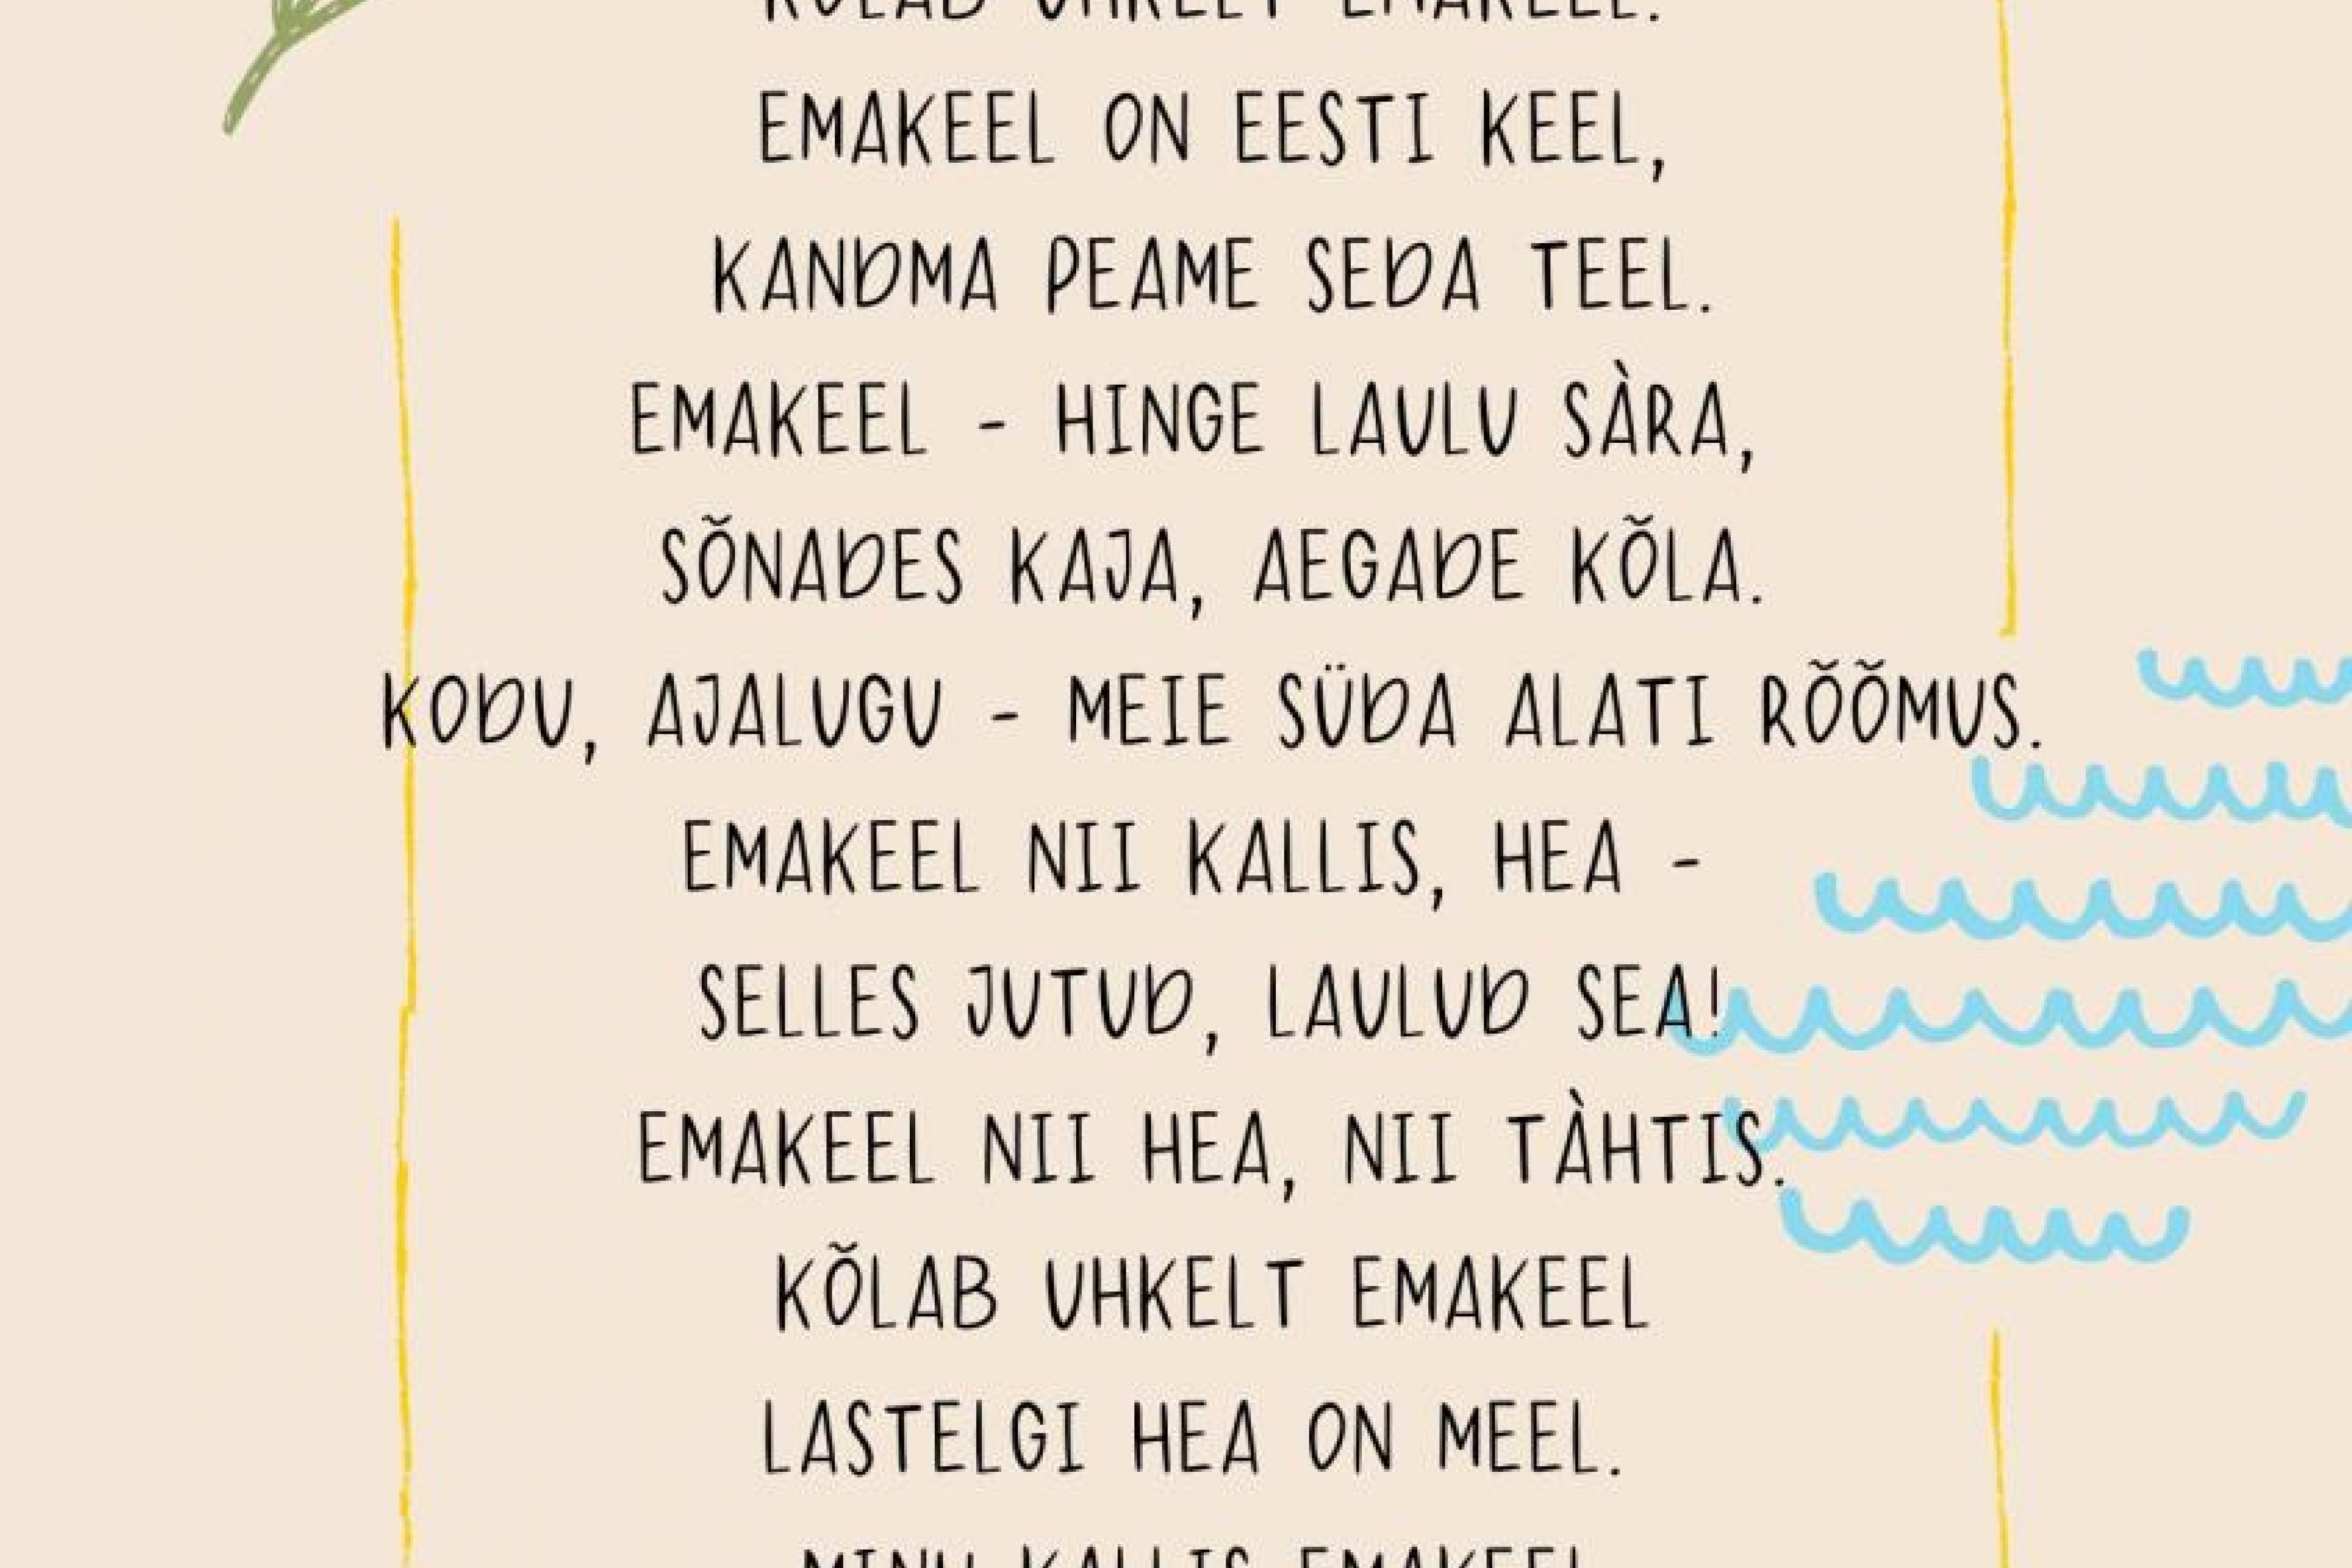 KÕLAB UHKELT EMAKEEL.
EMAKEEL ON EESTI KEEL,
KANDMA PEAME SEDA TEEL.
EMAKEEL - HINGE LAULU SÀRA,
SÕNADES KAJA, AEGADE KÕLA.
KODU, AJALUGU - MEIE SÜDA ALATI RÕÕMUS.
EMAKEEL NII KALLIS, HEA -
SELLES JUTUD, LAULUD SEA!
EMAKEEL NII HEA, NII TÀHTIS.
KÕLAB UHKELT EMAKEEL
LASTELGI HEA ON MEEL.
MINU KALLIS EMAKEEL